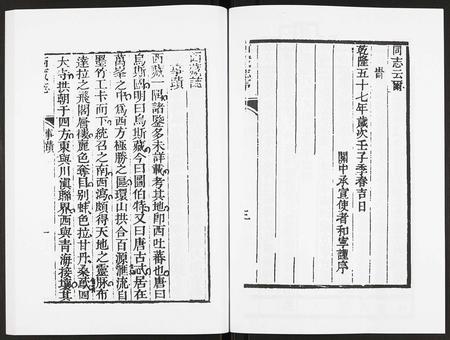 同志云爾
峕
乾隆五十七年歲次壬子季春吉日
關中承宣使者和寧謹序
三
西藏誌
事蹟
西藏一隅諸鑒多未詳載考其地即西吐蕃也唐曰
烏斯國明曰烏斯藏今曰圖伯特又曰唐古忒居在
萬峯之中爲西方極勝之區環山拱合百源滙流自
墨竹工卡而下統召之南西瀉頗得天地之靈脈布
達拉之飛閣層樓麗色奪目別蚌色拉甘丹桑鳶四
大寺拱朝于四方東與川滇聯界西與青海接壤其
事蹟
一